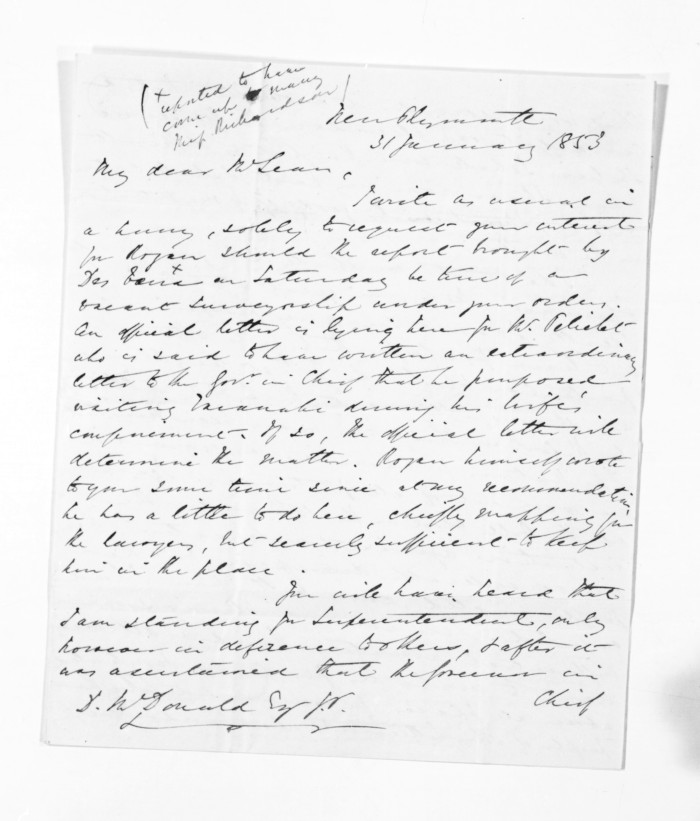 (+ reported to have
come up to marry
Miss Richardson)
New Plymouth
31 January 1853
My dear McLean,
I write as usual in
a hurry, solely to request your interest
for Rogan should the report brought by
Des on Saturday be true of a
vacant Surveyorship under your orders.
An official letter is lying here for Mr. Pelichet
who is said to have written an extraordinary
letter to the Govr. in Chief that he purposed
visiting Taranaki during his wife's
confinement. If so, the official letter will
determine the matter. Rogan himself wrote
to you some time since at my recommendation,
he has a little to do here, chiefly mapping for
the lawyers, but scarcely sufficient to keep
him in the place.
You will have heard that
I am standing for Superintendent, only
however in deference to others, & after it
was ascertained that the Governor in
Chief
D. McDonald Esq J.P.